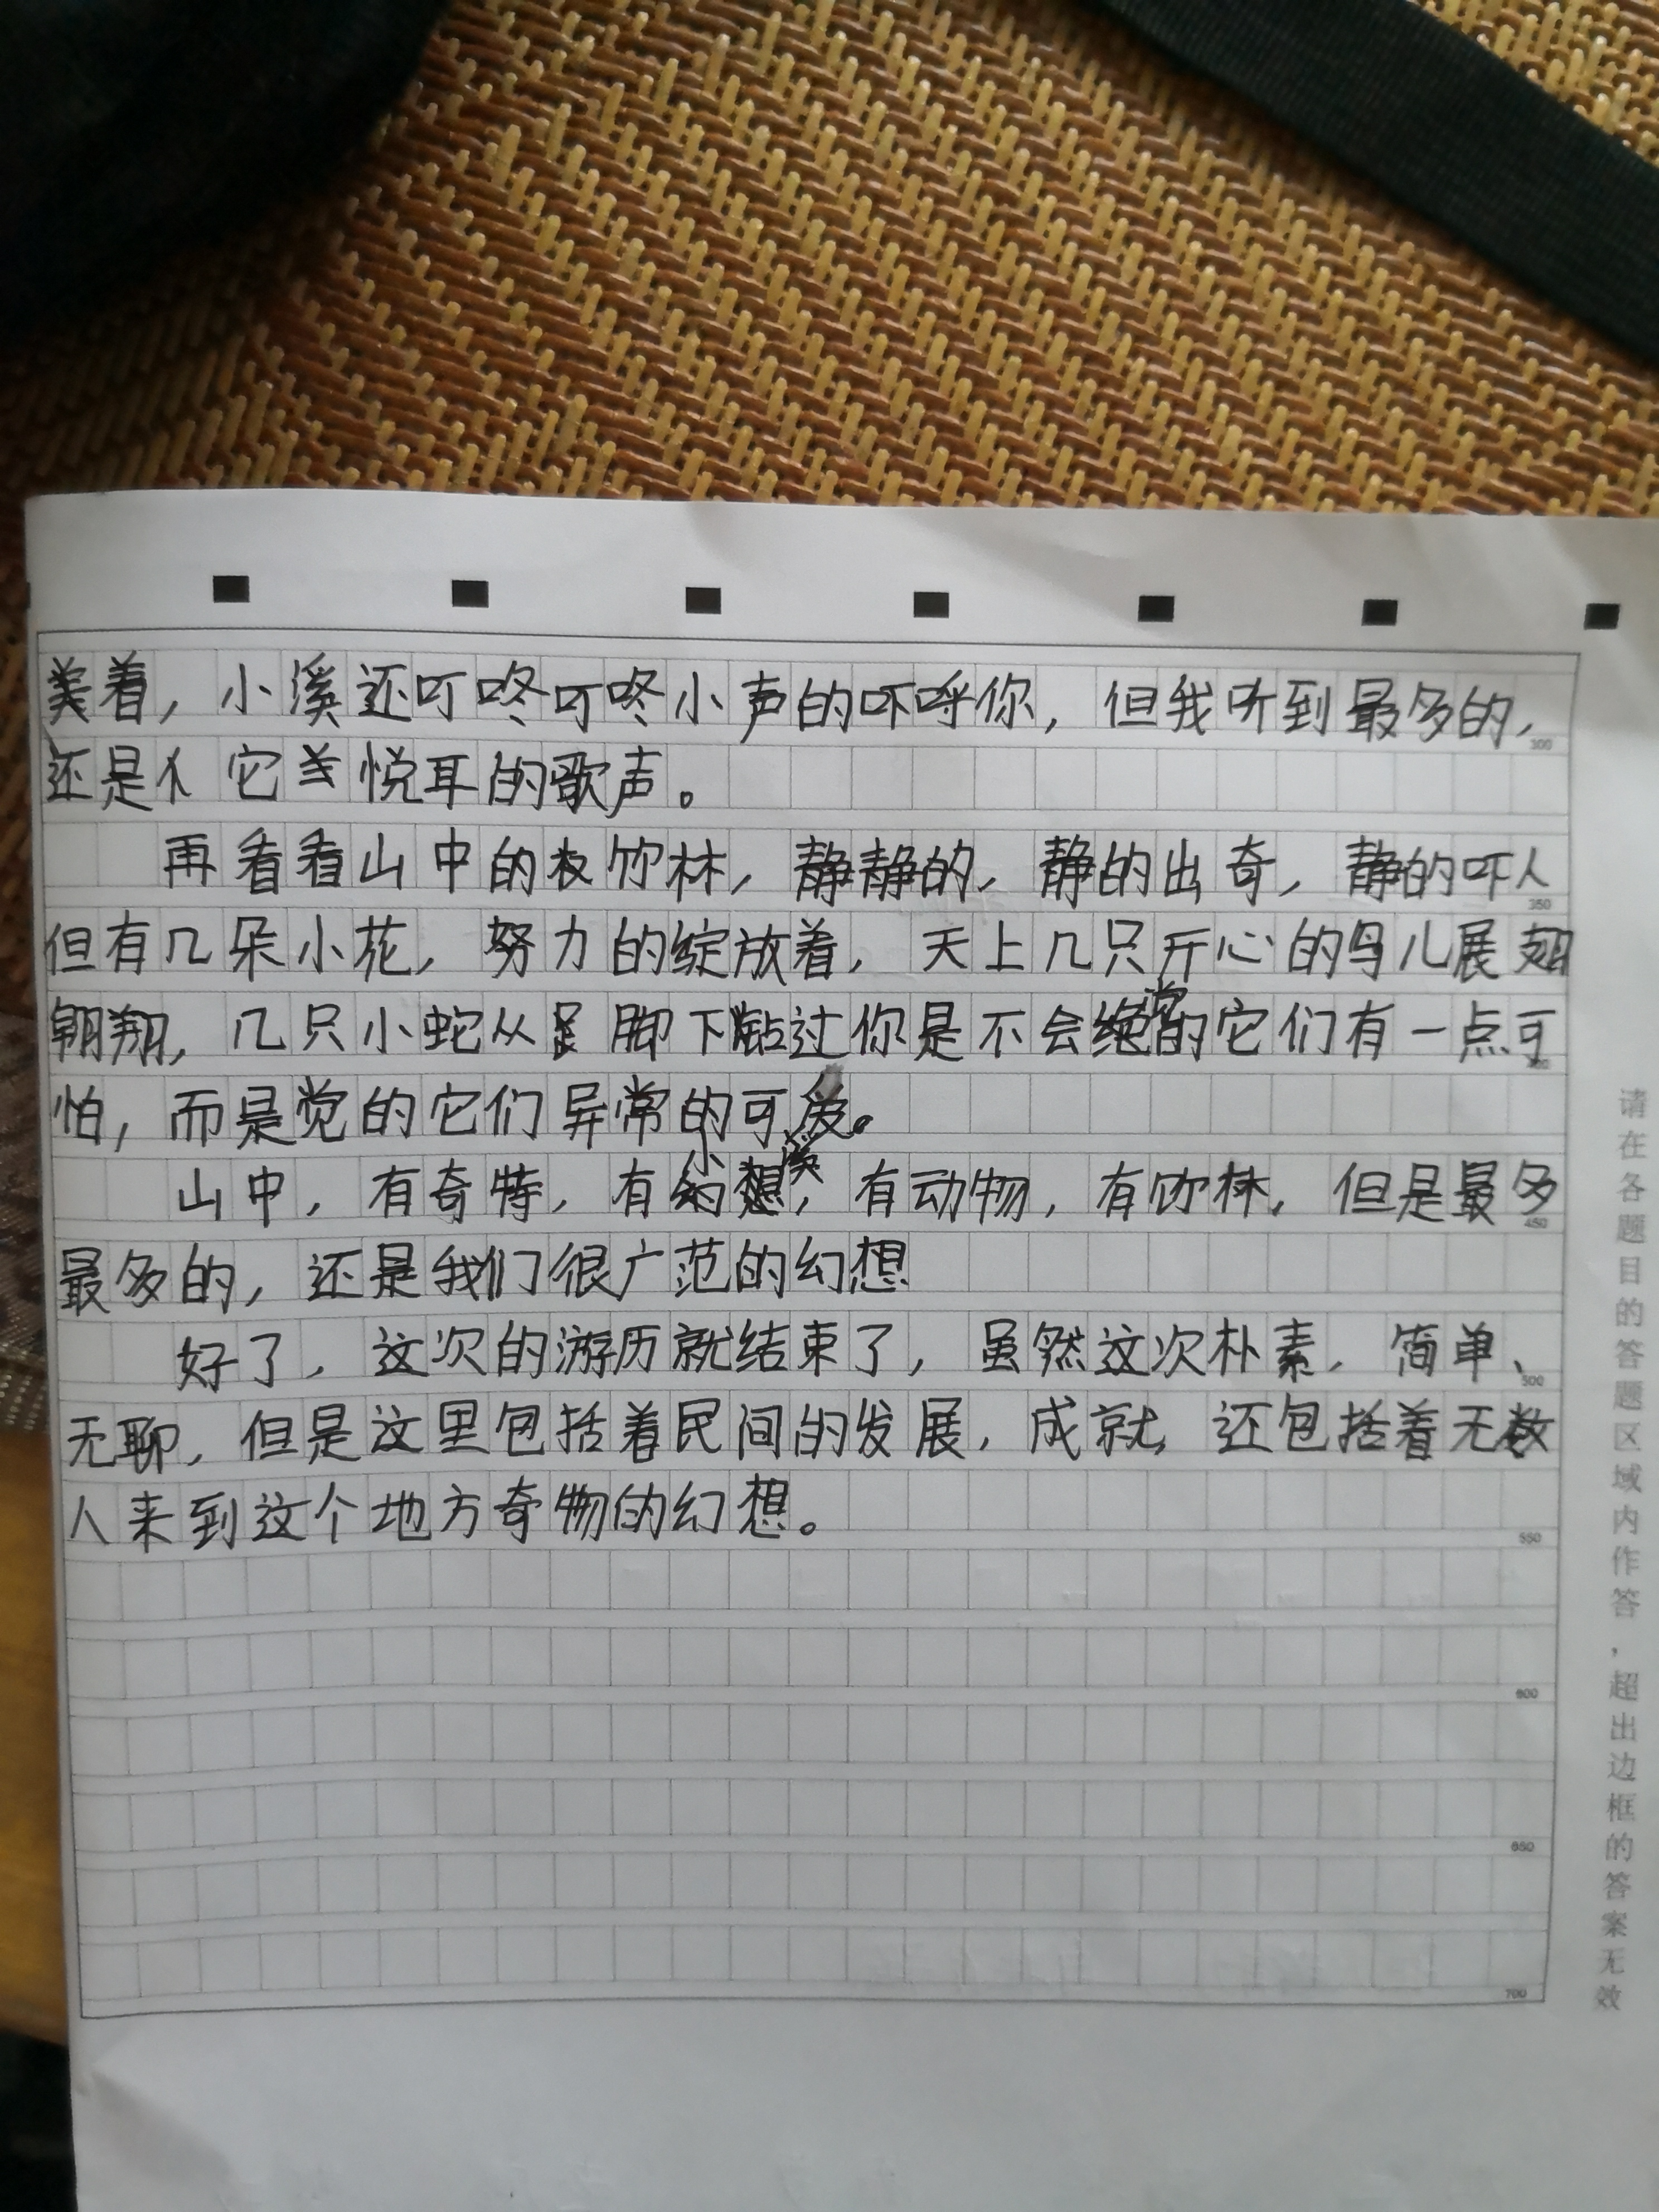 美着，小溪还叮咚叮咚小声的吓呼你，但我听到最多的，
300
还是它美悦耳的歌声。
再看看山中的竹林，静静的，静的出奇，静的吓人
350
但有几朵小花，努力的绽放着，天上几只开心的鸟儿展翅
翱翔，几只小蛇从脚下钻过你是不会觉的它们有一点可
怕，而是觉的它们异常的可爱。
山中，有奇特，有小溪，有动物，有竹林，但是最多
450
最多的，还是我们很广范的幻想
好了，这次的游历就结束了，虽然这次朴素，简单、
500
无聊，但是这里包括着民间的发展，成就，还包括着无数
人来到这个地方奇物的幻想。
550
600
650
700
请在各题目的答题区域内作答，超出边框的答案无效